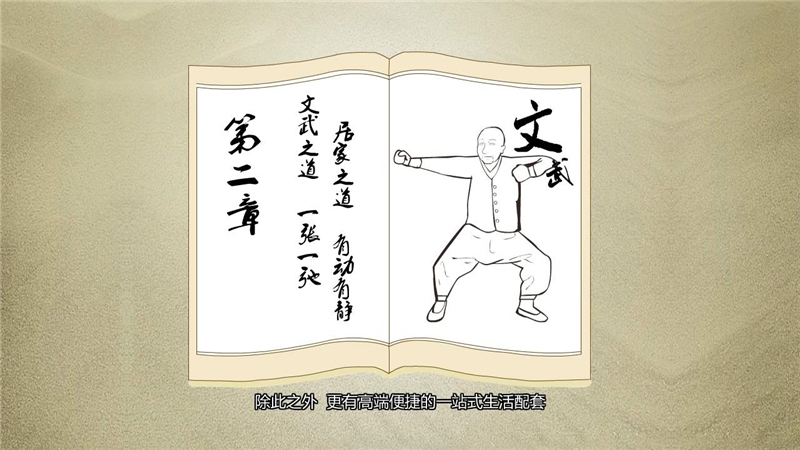 文武
居家之道 有动有静
文武之道 一张一弛
第二章
除此之外 更有高端便捷的一站式生活配套